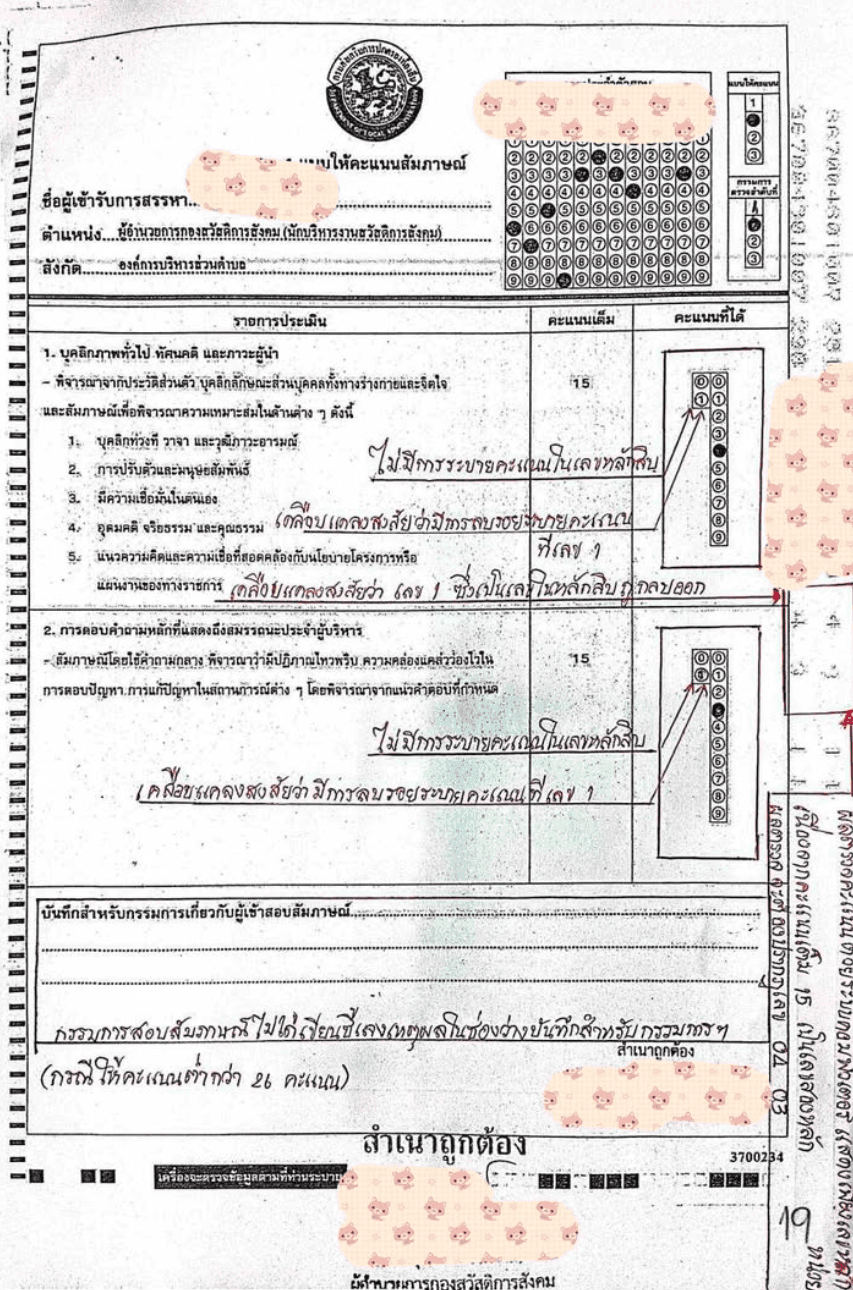 แบบให้คะแนนสัมภาษณ์
ชื่อผู้เข้ารับการสรรหา
ตำแหน่ง ผู้อำนวยการกองสวัสดิการสังคม (นักบริหารงานสวัสดิการสังคม)
สังกัด องค์การบริหารส่วนตำบล
แบบให้คะแนน
1
2
3
กรรมการ
ตรวจลำดับที่
1
2
3
รายการประเมิน คะแนนเต็ม คะแนนที่ได้
1. บุคลิกภาพทั่วไป ทัศนคติ และภาวะผู้นำ
- พิจารณาจากประวัติส่วนตัว บุคลิกลักษณะส่วนบุคคลทั้งทางร่างกายและจิตใจ 15
และสัมภาษณ์เพื่อพิจารณาความเหมาะสมในด้านต่าง ๆ ดังนี้
1. บุคลิกท่วงที วาจา และวุฒิภาวะอารมณ์
ไม่มีการระบายคะแนนในเลขหลักสิบ
2. การปรับตัวและมนุษยสัมพันธ์
3. มีความเชื่อมั่นในตนเอง
เคลือบแคลงสงสัยว่ามีการลบรอยระบายคะแนน
ที่เลข 1
4. อุดมคติ จริยธรรม และคุณธรรม
5. แนวความคิดและความเชื่อที่สอดคล้องกับนโยบายโครงการหรือ
แผนงานของทางราชการ
เคลือบแคลงสงสัยว่า เลข 1 ซึ่งเป็นเลขในหลักสิบ ถูกลบออก
2. การตอบคำถามหลักที่แสดงถึงสมรรถนะประจำผู้บริหาร
- สัมภาษณ์โดยใช้คำถามกลาง พิจารณาว่ามีปฏิภาณไหวพริบ ความคล่องแคล่วว่องไวใน 15
การตอบปัญหา การแก้ปัญหาในสถานการณ์ต่าง ๆ โดยพิจารณาจากแนวคำตอบที่กำหนด
ไม่มีการระบายคะแนนในเลขหลักสิบ
เคลือบแคลงสงสัยว่า มีการลบรอยระบายคะแนนที่เลข 1
บันทึกสำหรับกรรมการเกี่ยวกับผู้เข้าสอบสัมภาษณ์
กรรมการสอบสัมภาษณ์ ไม่ได้เขียนชี้แจงเหตุผลในช่องว่างบันทึกสำหรับกรรมการฯ
สำเนาถูกต้อง
(กรณีให้คะแนนต่ำกว่า 26 คะแนน)
สำเนาถูกต้อง
3700234
เครื่องจะตรวจข้อมูลตามที่ท่านระบาย
ผู้อำนวยการกองสวัสดิการสังคม
เนื่องจากคะแนนเต็ม 15 เป็นเลขสองหลัก
ผลตรวจ จะต้องปรากฏเลข 04 03
19